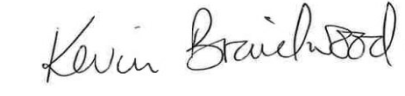 Kevin Braidwood